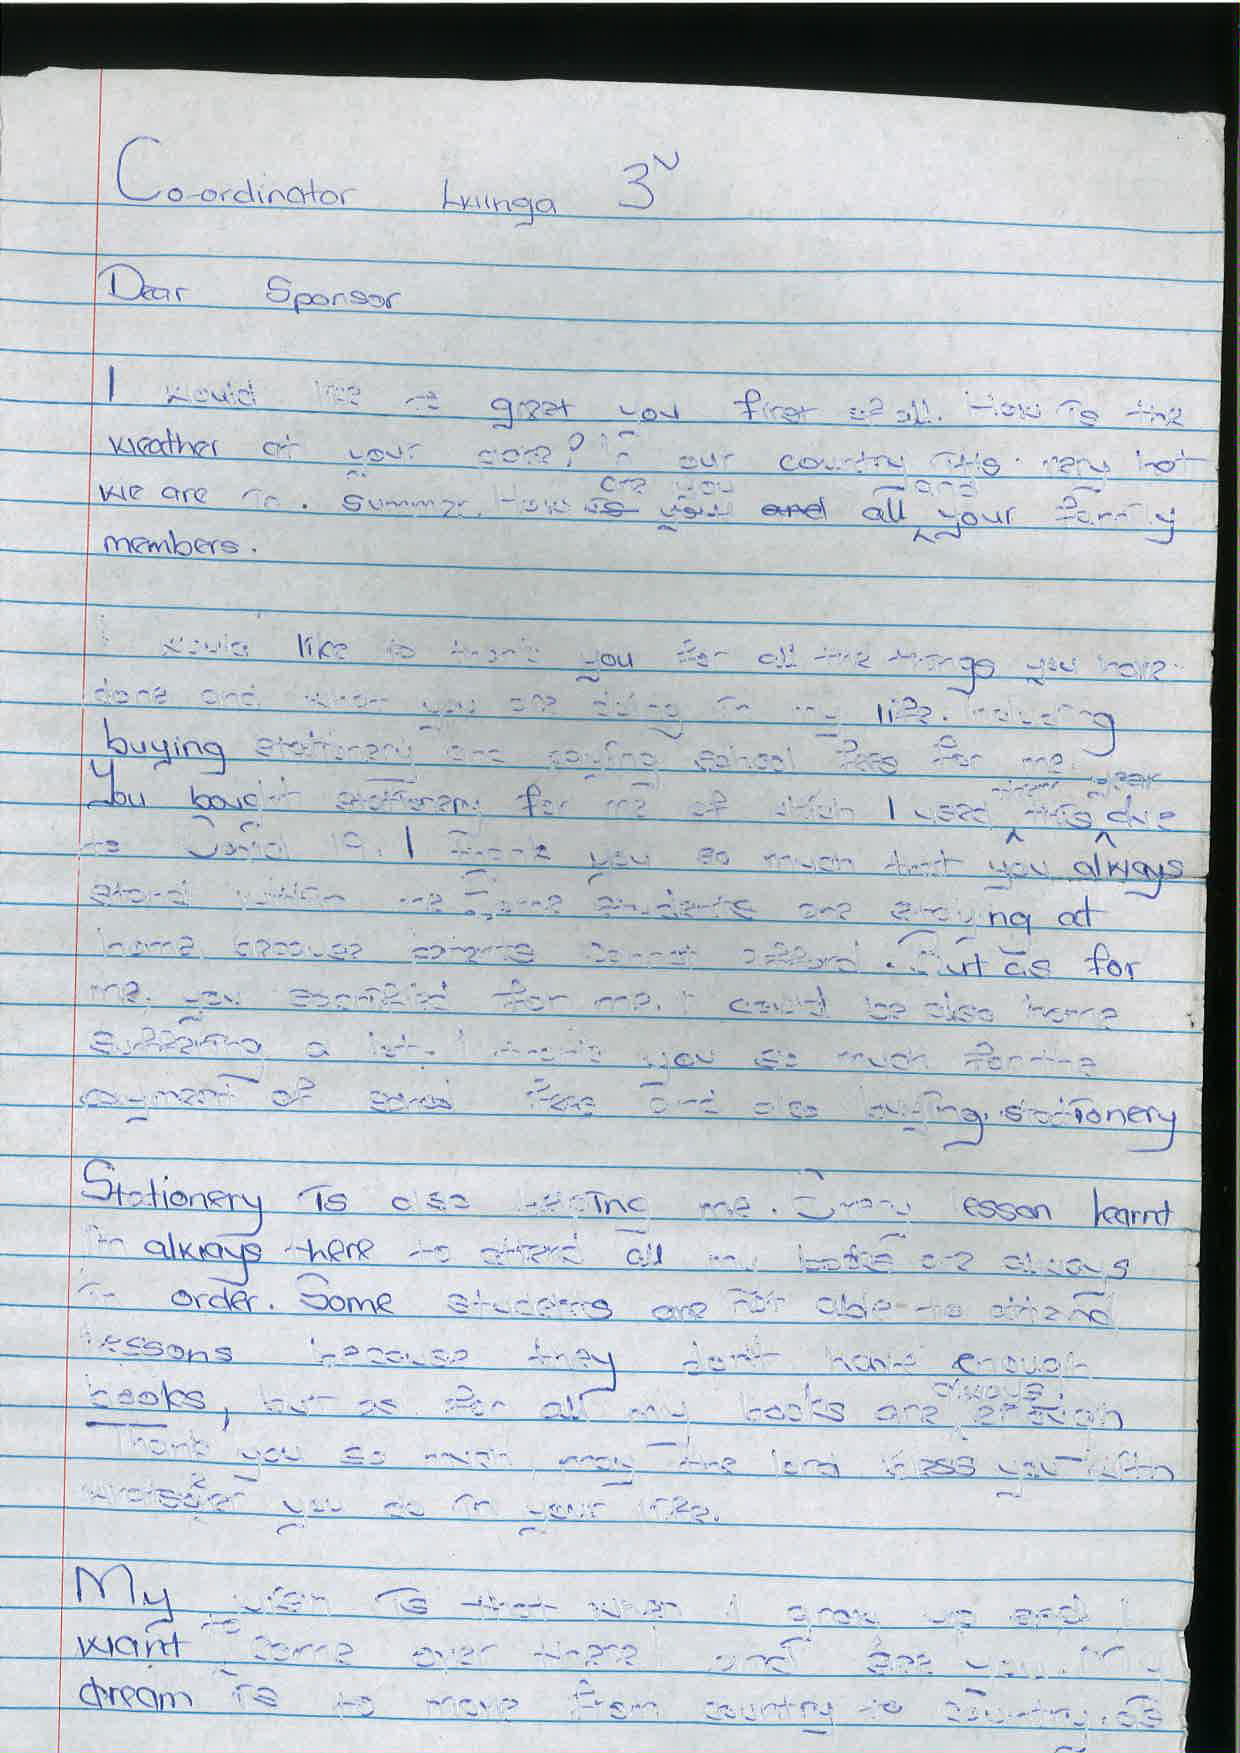 Co-ordinator 3
Dear Sponsor
I would like to greet you first of all. How is the
weather at your core? In our country its very hot
we are in. Summer. How are you all and your family
members.
I would like to thank you for all the things you have
done and what you are doing in my life. Including
buying stationery and paying school fees for me.
You bought stationery for me of which I used this due
to Covid 19. I thank you so much that you always
stand within me. Some students are staying at
home because parents cannot afford. But as for
me, you sacrificed for me. I could be also home
suffering a lot. I thank you so much for the
payment of school fees and also buying stationery
Stationery is also helping me. Every lesson learnt
I'm always there to attend all my books are always
in order. Some students are not able to attend
lessons because they don't have enough
books, but as for all my books are always enough
Thank you so much may the lord bless you with
whatever you do in your life.
My wish is that when I grow up and I
want to come over there and see you. My
dream is to move from country to country, as